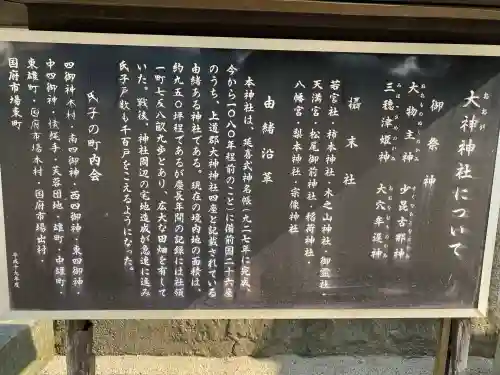 大神神社について
御祭神
大物主神　少毘古那神
三穂津姫神　大穴牟遅神
摂末社
若宮社・柿本神社・木之山神社・御霊社・
天満宮・松尾御前神社・稲荷神社・
八幡宮・梨本神社・宗像神社
由緒沿革
本神社は、延喜式神名帳（九二七年に完成、
今から一〇八〇年程前のこと）に備前国二十六座
のうち、上道郡大神神社四座と記載されている
由緒ある神社である。現在の境内地の面積は、
約九五〇坪程であるが慶長年間の記録には社領
一町七反八畝九歩とあり、広大な田畑を有して
いた。戦後、神社周辺の宅地造成が急速に進み
氏子戸数も千百戸をこえるようになった。
氏子の町内会
四御神本村・南四御神・西四御神・東四御神・
中四御神・
芙蓉団地・雄町・中雄町・
東雄町・国府市場本村・国府市場出村・
国府市場東町
平成十九年度